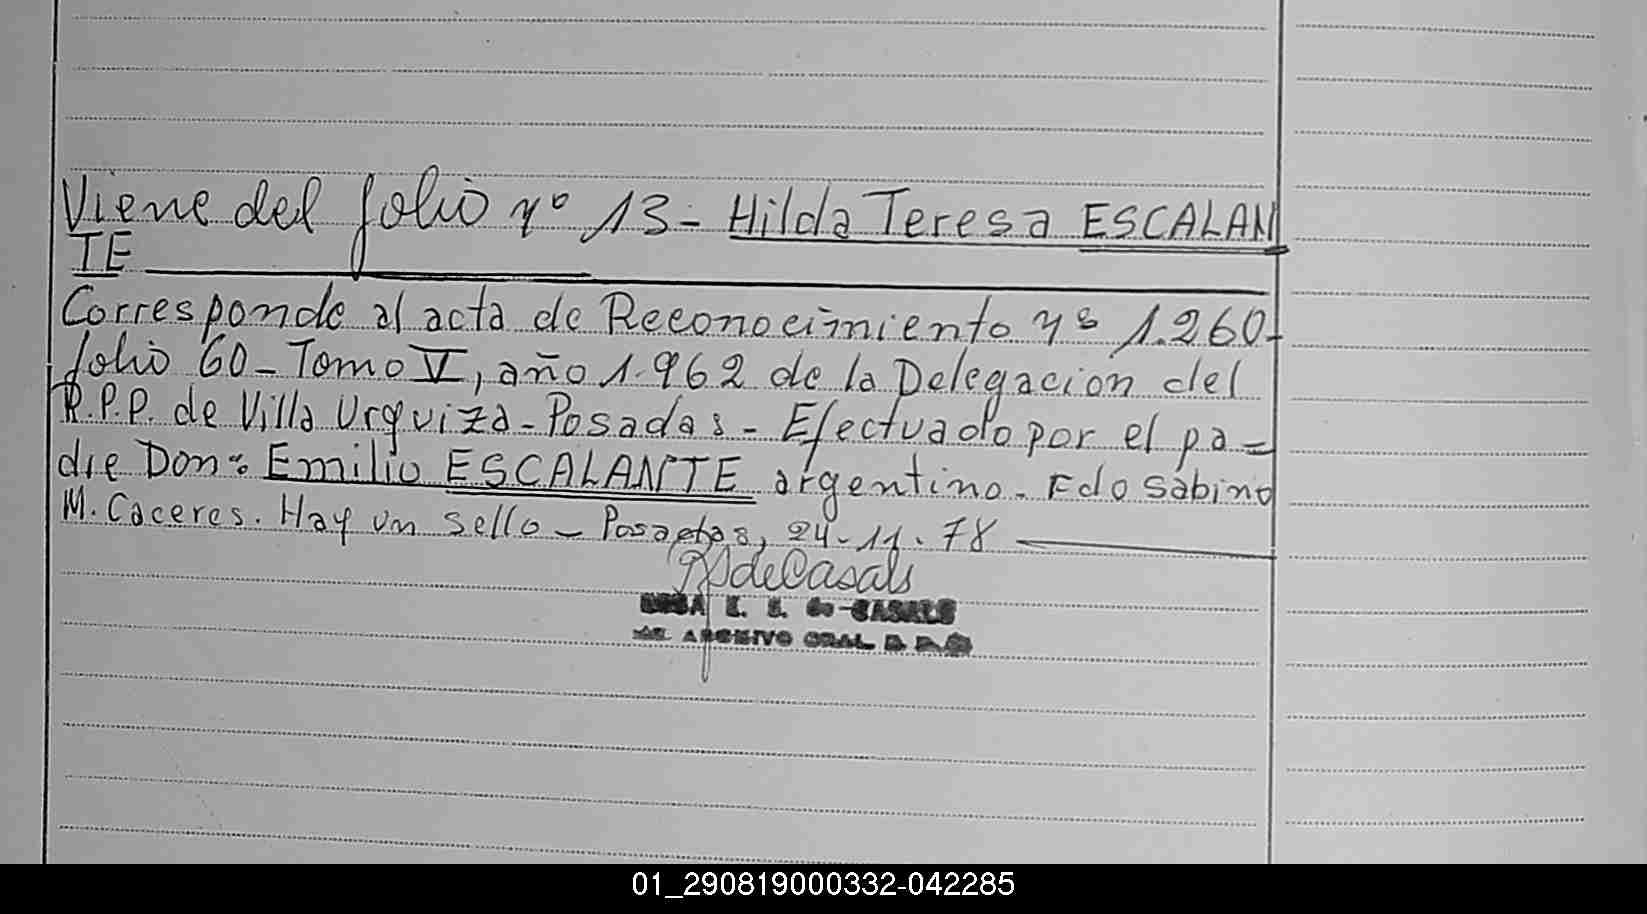 Viene del folio nº 13 - Hilda Teresa ESCALAN
TE
Corresponde al acta de Reconocimiento nº 1.260-
folio 60 - Tomo V, año 1.962 de la Delegacion del
R.P.P. de Villa Urquiza - Posadas - Efectuado por el pa=
dre Don: Emilio ESCALANTE argentino. Fdo Sabino
M. Caceres. Hay un sello - Posadas, 24-11-78
de Casals
E. de CASALS
ARCHIVO GRAL.
01_290819000332-042285